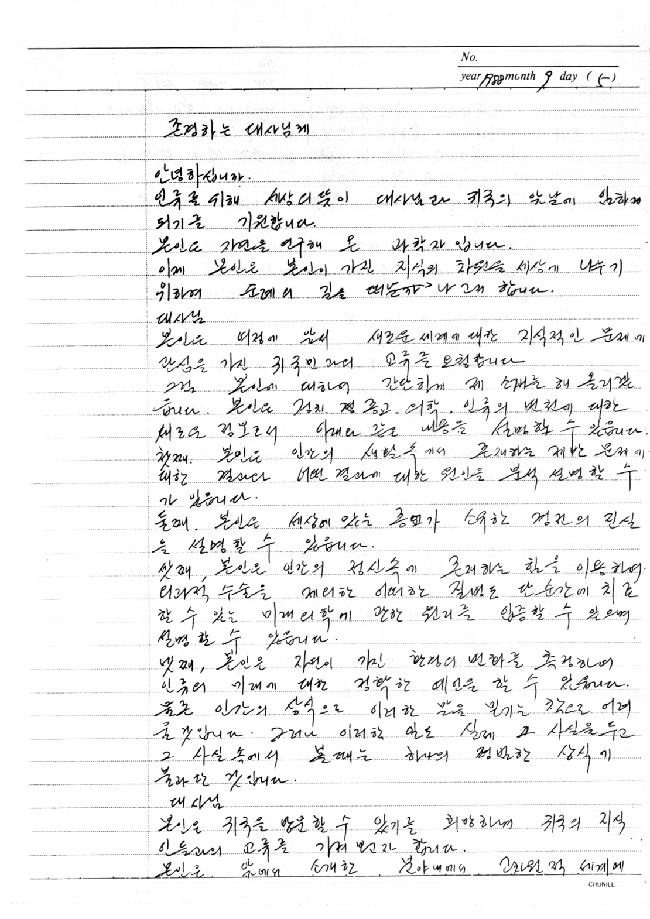 No.
year 1988 month 9 day (5)
존경하는 대사님께
안녕하십니까.
인류를 위해 세상의 뜻이 대사님과 귀국의 앞날에 임하게
되기를 기원합니다.
본인은 자연을 연구해 온 과학자입니다.
이제 본인은 본인이 가진 지식의 차원을 세상에 나누기
위하여 순례의 길을 떠날까 합니다.
대사님
본인은 여정에 앞서 새로운 세계에 대한 지식적인 문제에
관심을 가진 귀국민과의 교류를 요청합니다
그럼 본인에 대하여 간단하게 제 소개를 해 올리겠
습니다. 본인은 정치 종교. 의학. 인류의 변천에 대한
새로운 정보로서 아래와 같은 내용을 설명할 수 있읍니다.
첫째. 본인은 인간의 생활속에서 존재하는 제반 문제에
대한 결과와 어떤 결과에 대한 원인을 분석 설명할 수
가 있읍니다.
둘째. 본인은 세상에 있는 종교가 소유한 경전의 진실
을 설명할 수 있읍니다.
셋째, 본인은 인간의 정신속에 존재하는 힘을 이용하여
외과적 수술을 제외한 어떠한 질병도 단순간에 치료
할 수 있는 미래의학에 관한 원리를 입증할 수 있으며
설명할 수 있읍니다.
넷째, 본인은 자연이 가진 환경의 변화를 측정하여
인류의 미래에 대한 정확한 예언을 할 수 있읍니다.
물론 인간의 상식으로 이러한 말을 믿기는 참으로 어려
울것입니다. 그러나 이러한 말도 실제 그 사실을 두고
그 사실속에서 볼때는 하나의 평범한 상식에
불과한 것입니다.
대사님
본인은 귀국을 방문할 수 있기를 희망하며 귀국의 지식
인들과의 교류를 가져보고자 합니다.
본인은 앞에서 소개한 분야에서 고차원적 세계에
CHUNILL